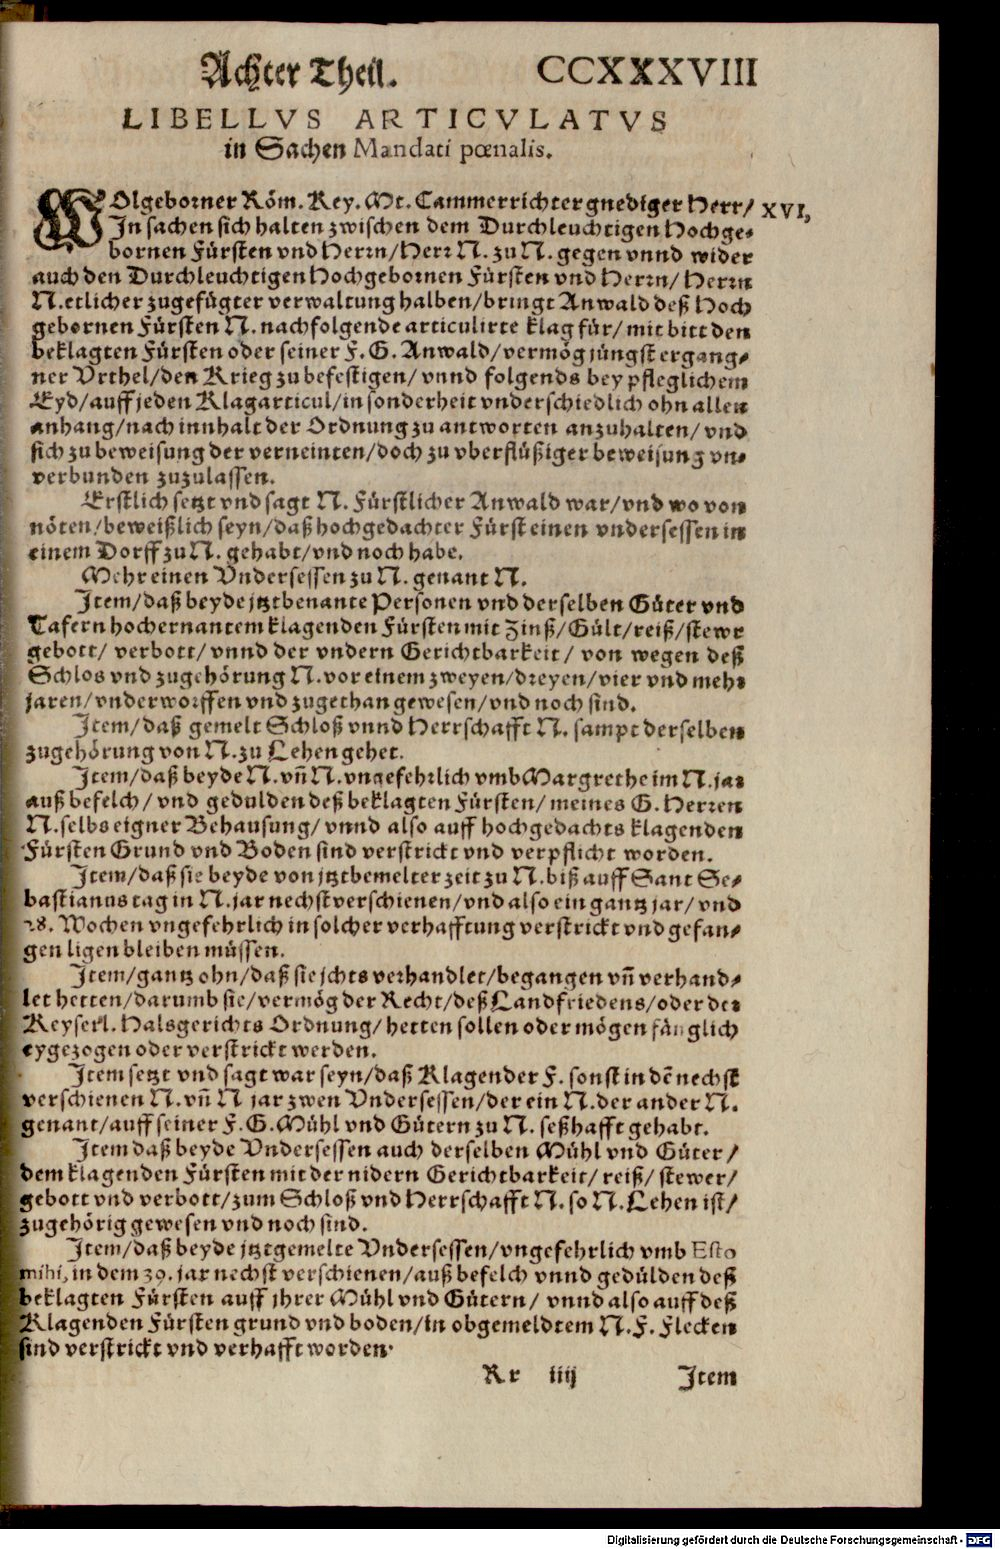 Achter Theil. CCXXXVIII
LIBELLVS ARTICVLATVS
in Sachen Mandati pœnalis.
WOlgeborner Röm. Key. Mt. Cammerrichter gnediger Herr/ XVI,
In sachen sich halten zwischen dem Durchleuchtigen Hochge-
bornen Fürsten vnd Herrn/ Herr N. zu N. gegen vnnd wider
auch den Durchleuchtigen Hochgebornen Fürsten vnd Herrn/ Herrn
N. etlicher zugefügter verwaltung halben/ bringt Anwald deß Hoch
gebornen Fürsten N. nachfolgende articulirte klag für/ mit bitt den
beklagten Fürsten oder seiner F. G. Anwald/ vermög jüngst ergang-
ner Vrthel/ den Krieg zu befestigen/ vnnd folgends bey pfleglichem
Eyd/ auff jeden Klagarticul/ in sonderheit vnderschiedlich ohn allen
anhang/ nach innhalt der Ordnung zu antworten anzuhalten/ vnd
sich zu beweisung der verneinten/ doch zu vberflüßiger beweisung vn-
verbunden zuzulassen.
Erstlich setzt vnd sagt N. Fürstlicher Anwald war/ vnd wo von
nöten/ beweißlich seyn/ daß hochgedachter Fürst einen vndersessen in
einem Dorff zu N. gehabt/ vnd noch habe.
Mehr einen Vndersessen zu N. genant N.
Item/ daß beyde jtztbenante Personen vnd derselben Güter vnd
Tafern hochernantem klagenden Fürsten mit Zinß/ Gült/ reiß/ stewr
gebott/ verbott/ vnnd der vndern Gerichtbarkeit/ von wegen deß
Schlos vnd zugehörung N. vor einem zweyen/ dreyen/ vier vnd mehr
jaren/ vnderworffen vnd zugethan gewesen/ vnd noch sind.
Item/ daß gemelt Schloß vnnd Herrschafft N. sampt derselben
zugehörung von N. zu Lehen gehet.
Item/ daß beyde N. vñ N. vngefehrlich vmb Margrethe im N. jar
auß befelch/ vnd gedulden deß beklagten Fürsten/ meines G. Herren
N. selbs eigner Behausung/ vnnd also auff hochgedachts klagenden
Fürsten Grund vnd Boden sind verstrickt vnd verpflicht worden.
Item/ daß sie beyde von jtztbemelter zeit zu N. biß auff Sant Se-
bastianus tag in N. jar nechst verschienen/ vnd also ein gantz jar/ vnd
28. Wochen vngefehrlich in solcher verhafftung verstrickt vnd gefan-
gen ligen bleiben müssen.
Item/ gantz ohn/ daß sie jchts verhandlet/ begangen vñ verhand-
let hetten/ darumb sie/ vermög der Recht/ deß Landfriedens/ oder der
Keyserl. Halsgerichts Ordnung/ hetten sollen oder mögen fänglich
eygezogen oder verstrickt werden.
Item setzt vnd sagt war seyn/ daß Klagender F. sonst in dẽ nechst
verschienen N. vñ N jar zwen Vndersessen/ der ein N. der ander N.
genant/ auff seiner F. G. Mühl vnd Gütern zu N. seßhafft gehabt.
Item daß beyde Vndersessen auch derselben Mühl vnd Güter/
dem klagenden Fürsten mit der nidern Gerichtbarkeit/ reiß/ stewer/
gebott vnd verbott/ zum Schloß vnd Herrschafft N. so N. Lehen ist/
zugehörig gewesen vnd noch sind.
Item/ daß beyde jtztgemelte Vndersessen/ vngefehrlich vmb Esto
mihi, in dem 39. jar nechst verschienen/ auß befelch vnnd gedülden deß
beklagten Fürsten auff jhrer Mühl vnd Gütern/ vnnd also auff deß
Klagenden Fürsten grund vnd boden/ in obgemeldtem N. F. Flecken
sind verstrickt vnd verhafft worden.
Rr iiij Item
Digitalisierung gefördert durch die Deutsche Forschungsgemeinschaft - DFG